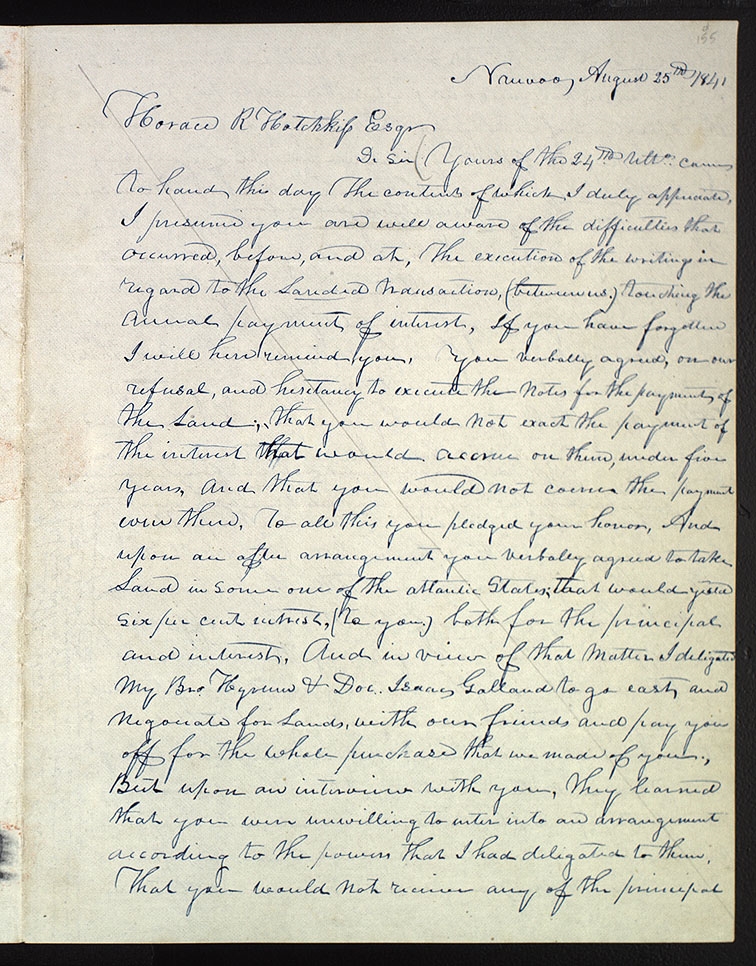 155
Nauvoo, August 25th 1841
Horace R Hotchkiss Esqr
Dr Sir (Yours of the 24th Ulto. came
to hand this day The contents of which I duly appreciate,
I presume you are well aware of the difficulties that
occurred, before, and at, The execution of the writings in
regard to the Landed transaction, (between us.) touching the
annual payment of interest, If you have forgotten
I will here remind you, You verbally agreed, on our
refusal, and hesitancy to execute the Notes for the payment of
the Land, that you would not exact the payment of
the interest that would accrue on them, under five
years, And that you would not coerce the payment
even then, To all this you pledged your honor, And
upon an after arrangement you verbally agreed to take
Land in some one of the atlantic States, that would yield
six per cent intrest, (to you) both for the principal
and interest, And in view of that matter I delegated
My Bro. Hyrum & Doc. Isaac Galland to go east, and
negociate for Lands, with our friends and pay you
off for the whole purchase that we made of you.,
But upon an interview with you, they learned
that you were unwilling to enter into an arrangement
according to the powers that I had deligated to them,
That you would not receive any of the principal